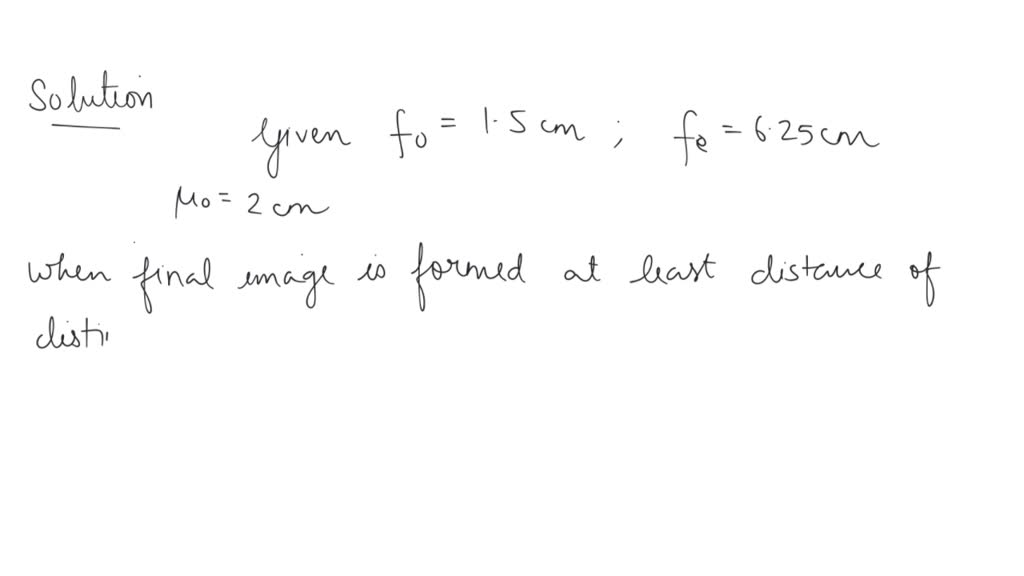 Solution
Given fo = 1.5 cm ; fe = 6.25 cm
μo = 2 cm
when final image is formed at least distance of
disti